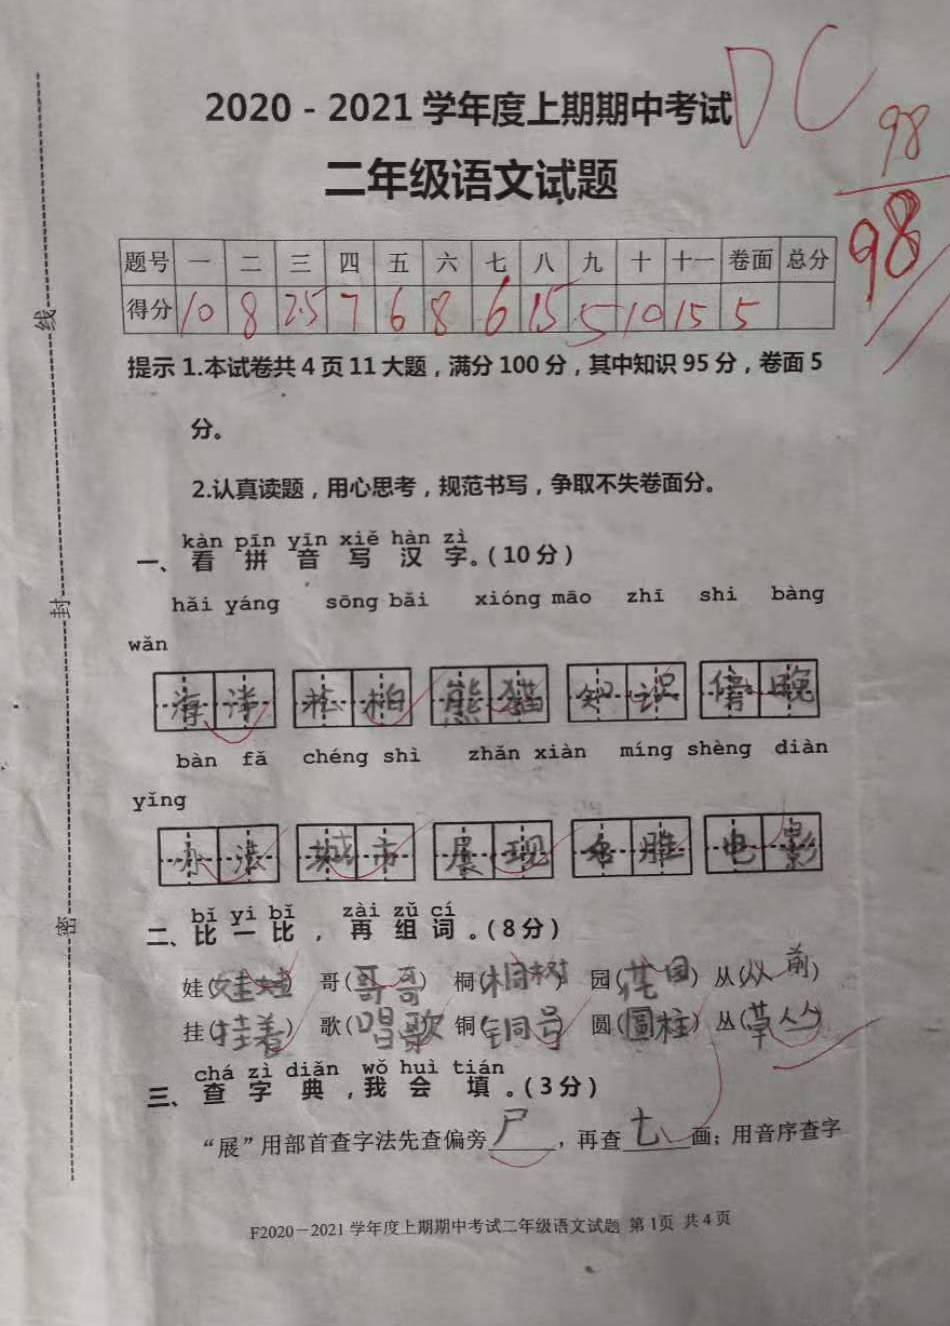 DC
98
98
2020-2021学年度上期期中考试
二年级语文试题
题号 一 二 三 四 五 六 七 八 九 十 十一 卷面 总分
得分 10 8 2.5 7 6 8 6 15 5 10 15 5
提示 1.本试卷共4页11大题，满分100分，其中知识95分，卷面5
分。
2.认真读题，用心思考，规范书写，争取不失卷面分。
kàn pīn yīn xiě hàn zì
一、看 拼 音 写 汉 字。(10分)
hǎi yáng sōng bǎi xióng māo zhī shi bàng
wǎn
海洋 松柏 熊猫 知识 傍晚
bàn fǎ chéng shì zhǎn xiàn míng shèng diàn
yǐng
办法 城市 展现 名胜 电影
bǐ yi bǐ zài zǔ cí
二、比 一 比 ， 再 组 词 。(8分)
娃(娃娃) 哥(哥哥) 桐(桐树) 园(花园) 从(从前)
挂(挂着) 歌(唱歌) 铜(铜号) 圆(圆柱) 丛(草丛)
chá zì diǎn wǒ huì tián
三、查 字 典 ，我 会 填 。(3分)
“展”用部首查字法先查偏旁尸，再查七画；用音序查字
F2020－2021学年度上期期中考试二年级语文试题 第1页 共4页
线
封
密